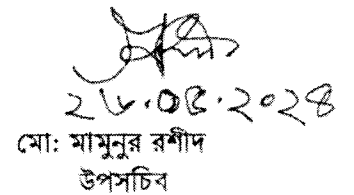 ২৬.০৫.২০২৪
মো: মামুনুর রশীদ
উপসচিব